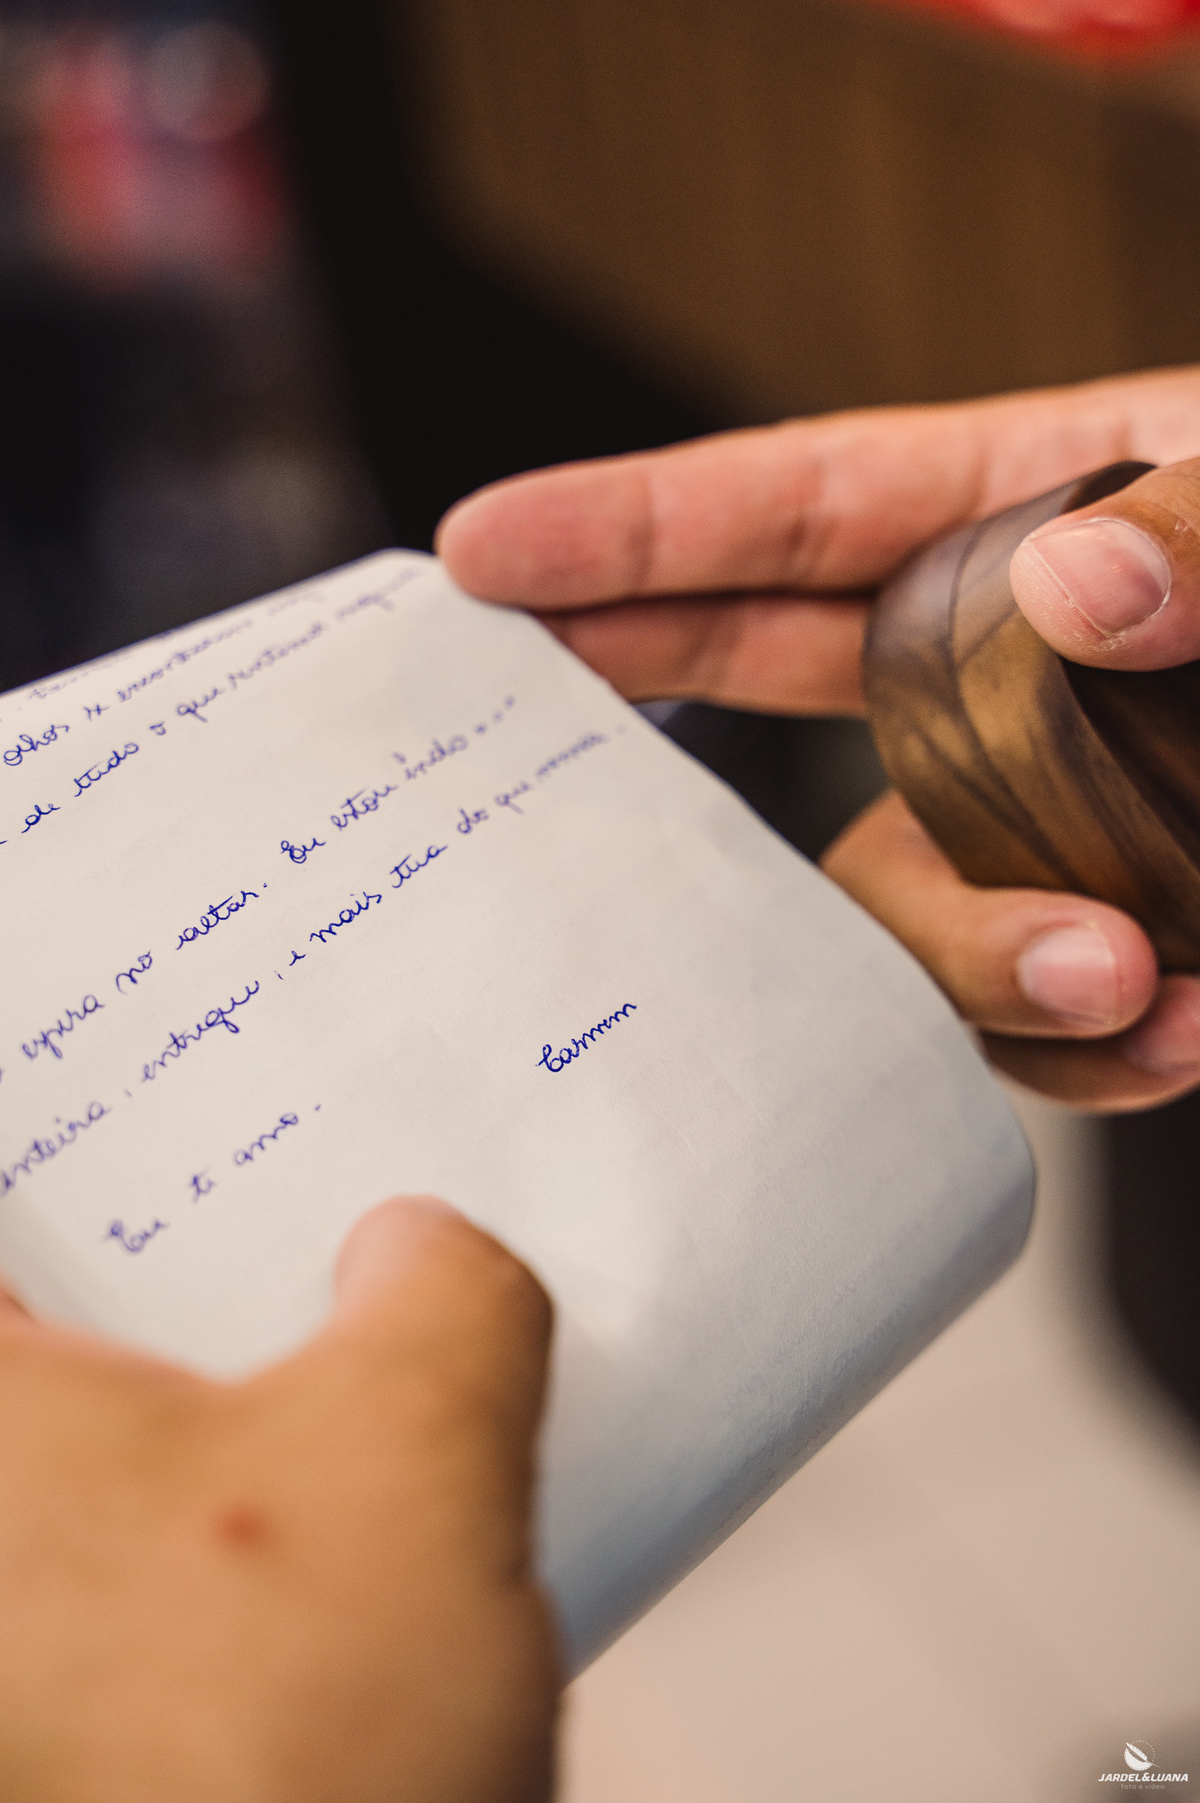 olhos se encontrarem
de tudo o que
espera no altar. Eu estou indo...
inteira, entregue, e mais tua do que nunca.
Eu te amo.
Carmem
JARDEL&LUANA
foto e vídeo